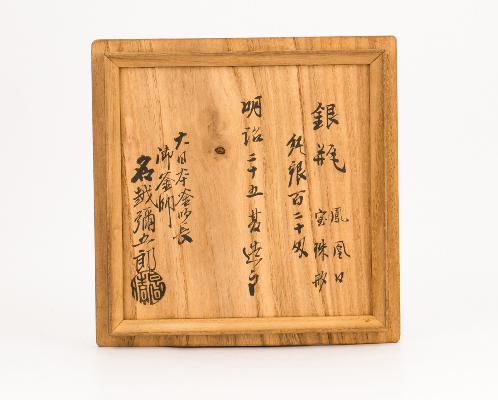 銀瓶
鳳凰口
宝珠形
純銀百二十匁
明治二十五 造之
大日本釜師長
御釜師
名越彌五郎